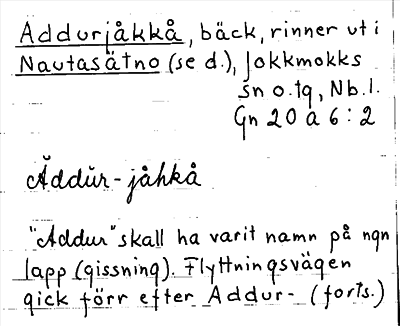 Addurjåkkå, bäck, rinner ut i
Nautasätno (se d.), Jokkmokks
sn o. tg, Nb. l.
Gn 20 a 6:2
Ăddŭr-jåhkå
"Addur" skall ha varit namn på ngn
lapp (gissning). Flyttningsvägen
gick förr efter Addur- (forts.)